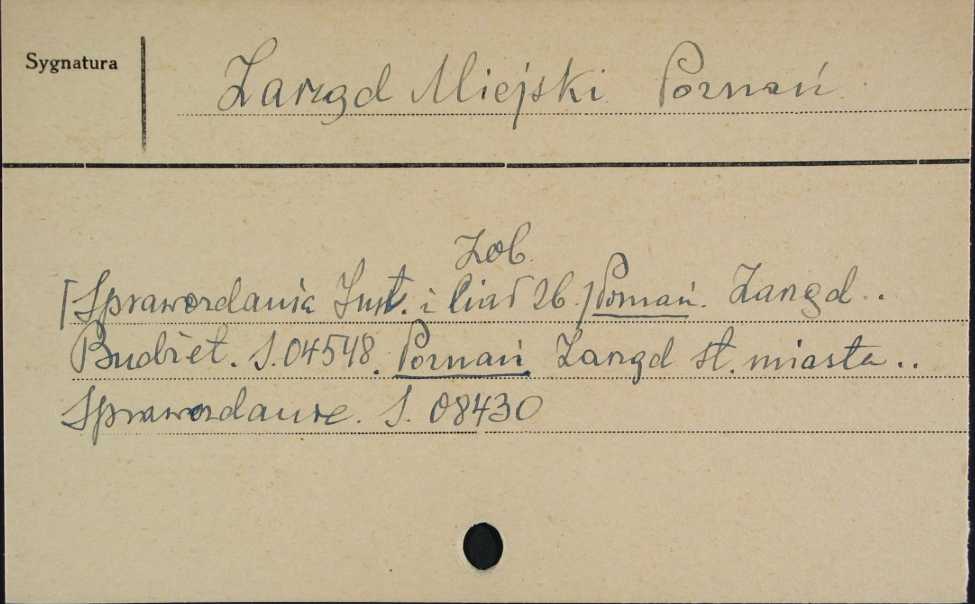 Sygnatura
Zarząd Miejski Poznań
Zob.
[Sprawozdania Inst. i 26.] Poznań. Zarząd ..
Budżet. S.04548. Poznań Zarząd st. miasta ..
Sprawozdanie. S. 08430